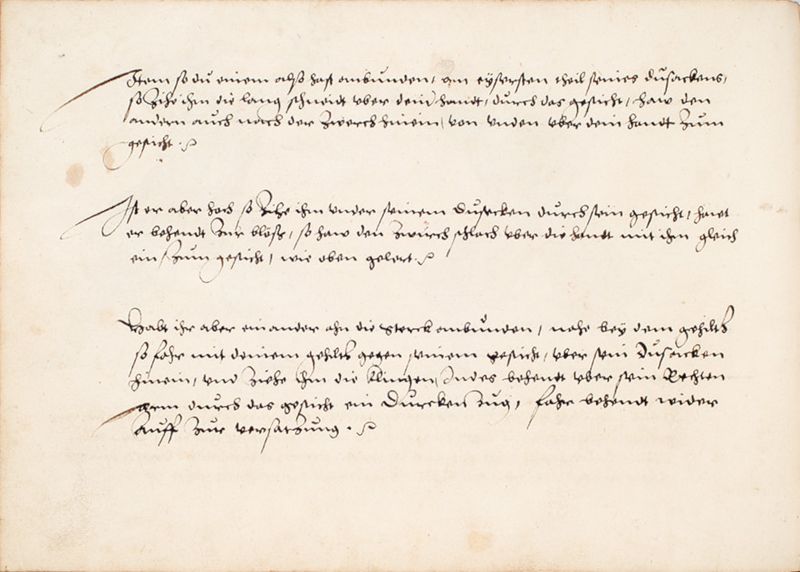 Item so du einem also hast anbunden, am eyserstenn theil seines dusackens,
so Zihe ihm die lang schneidt vber dein handt, durch das gesicht, haw den
andern auch nach der Zwerch hinein, von vnden vber dein handt Zum
gesicht.
Ist er aber hoch so Zihe ihm vnder seinem Dusecken durch sein gesicht, hawt
er behendt Zur blösß, so haw den Zwürch schlach vber die handt mit ihm gleich
ein, Zum gesicht, wie oben gelert.
Habt ihr aber ein ander ahn die sterck anbunden, nahe bey dem gehiltz
so fahr mit deinem gehiltz gegen seinem gesicht, vber sein Dusacken
hinein, vnd Ziehe ihm die klingen, Indes behendt vber sein Rechten
arm durch das gesicht ein Durcken Zug, fahr behendt wider
Auff Zur versatzung.